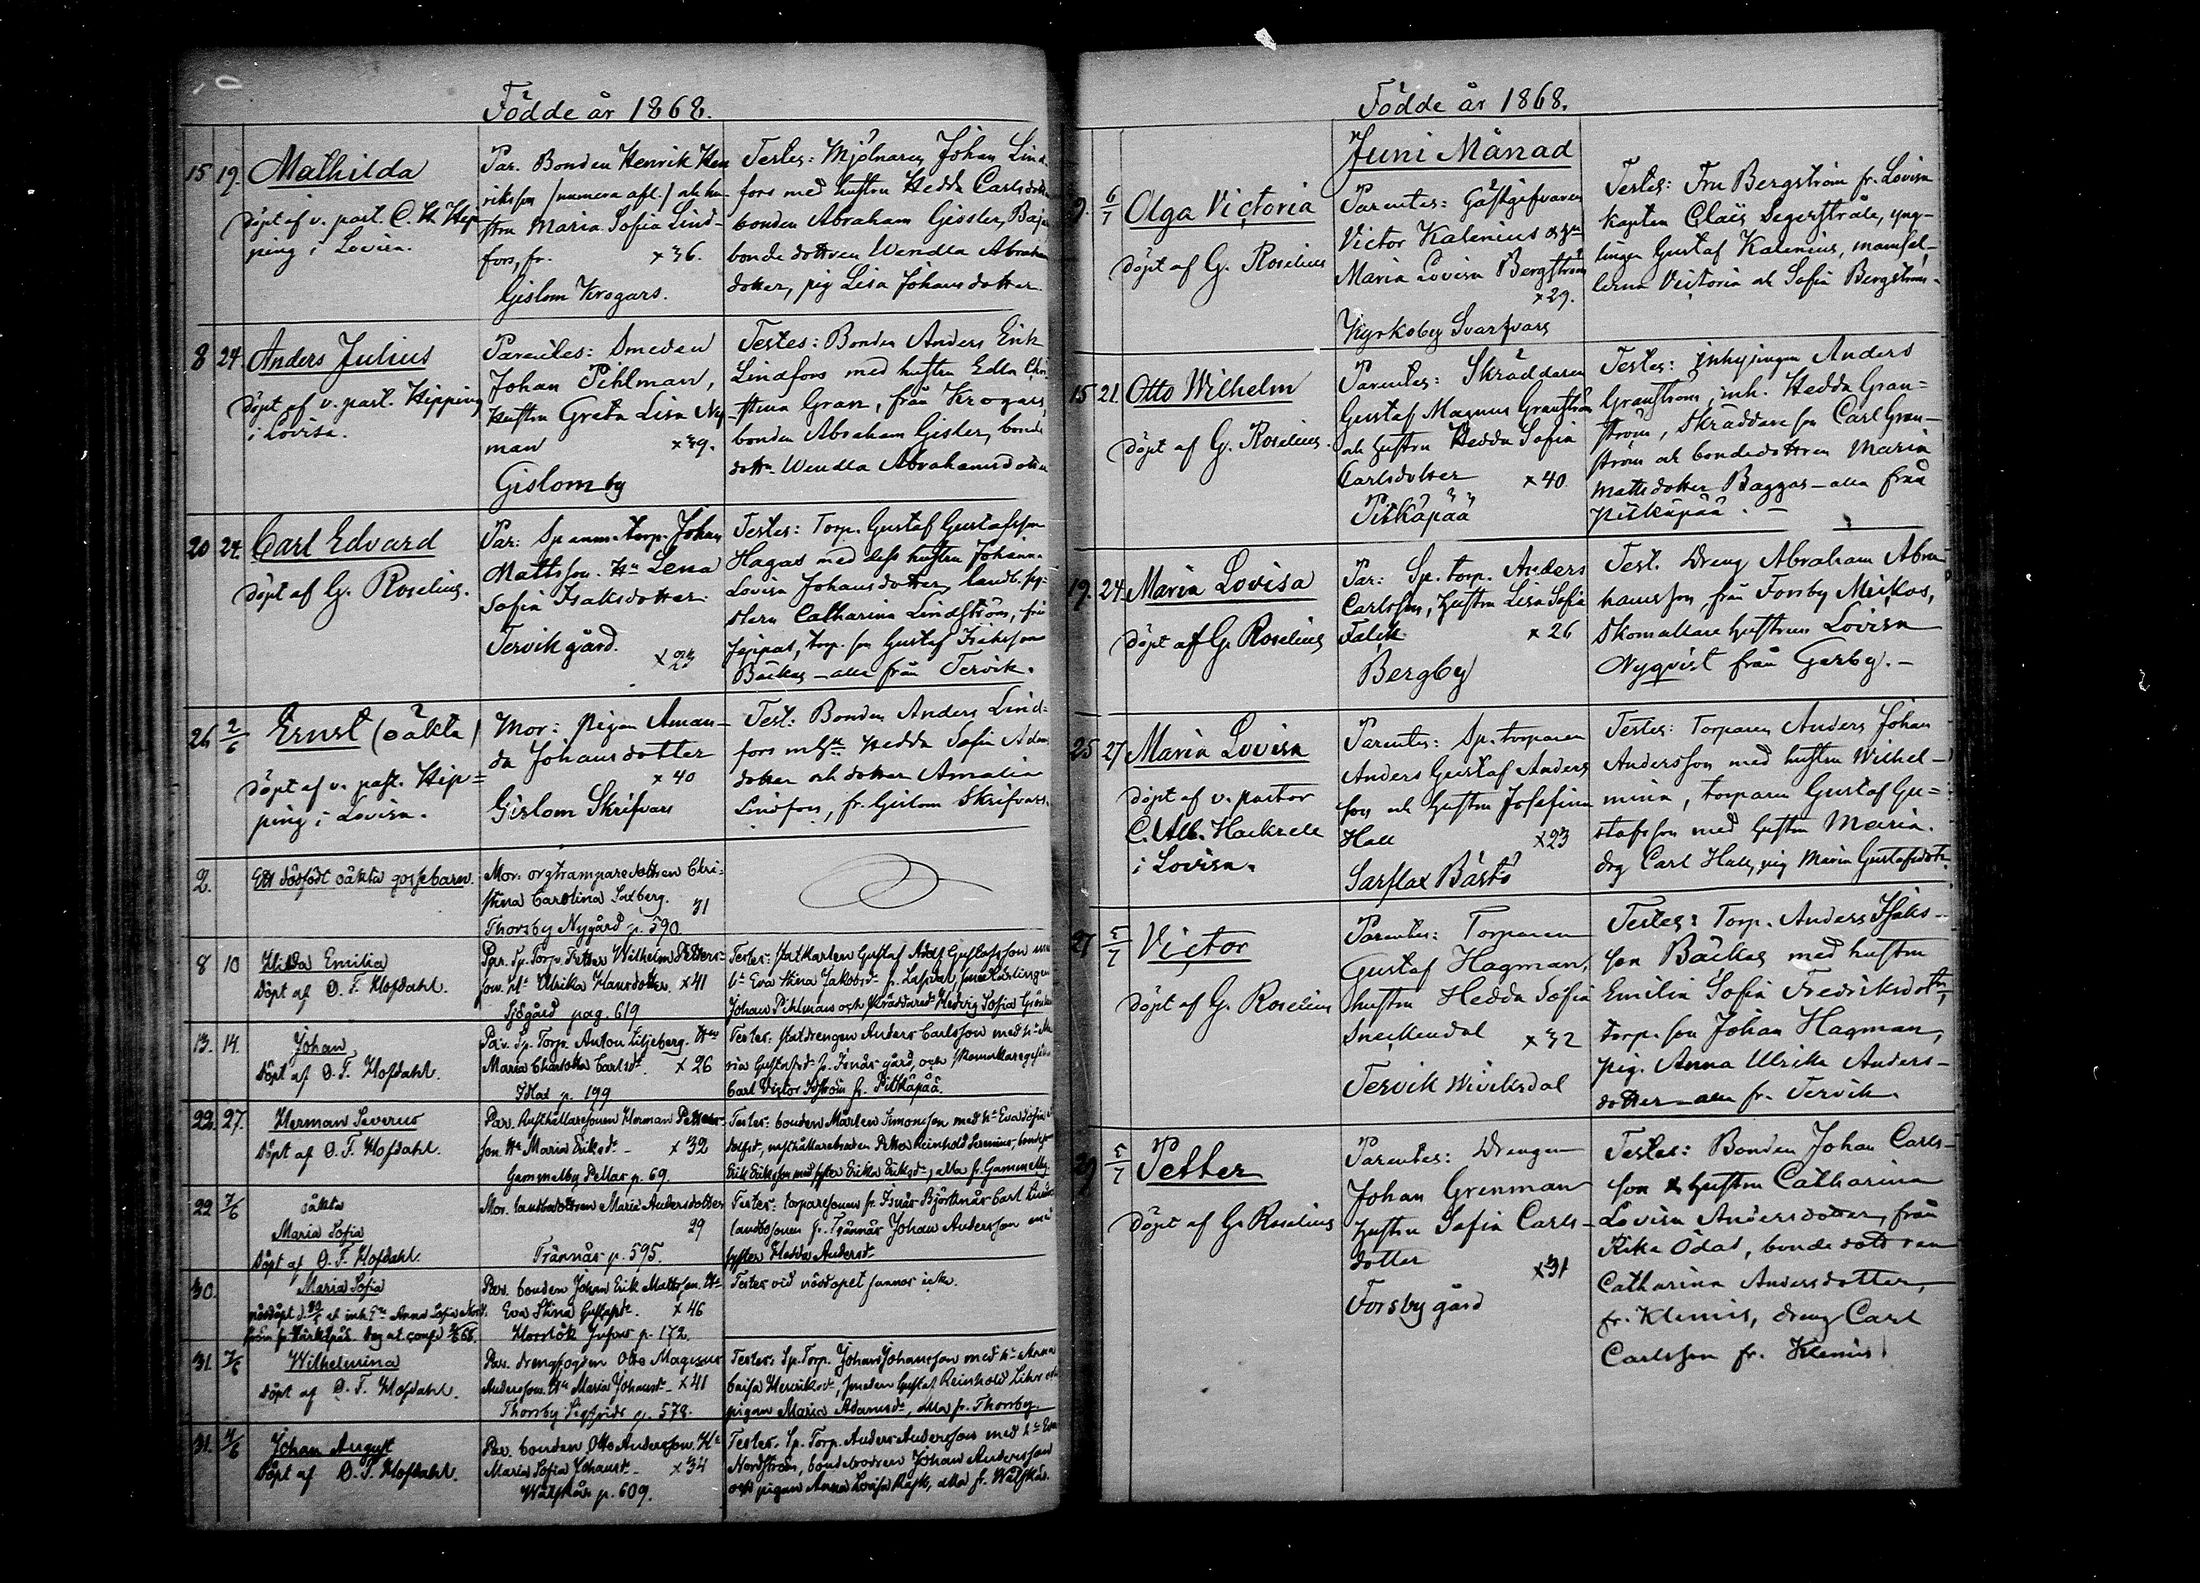 Födde år 1868.
15 19. Mathilda
döpt af v. past. C. H. Hip
ping i Lovisa.
Par. Bonden Henrik Hen
riksson /numera afl./ och hu
stru Maria Sofia Lind-
fors, fr. x 36.
Gislom Krogars.
Testes: Mjölnaren Johan Lind
fors med hustru Hedda Carlsdotter
bonden Abraham Gissler,
bondedottren Wendla Abrahams
dotter, pig Lisa Johansdotter.
8 24. Anders Julius
döpt af v. past. Hipping
i Lovisa.
Parentes: Smeden
Johan Pihlman,
hustru Greta Lisa Ny
man x 39.
Gislomby
Testes: Bonden Anders Erik
Lindfors med hustru Edla Chri
stina Gran, från Krogars,
bonden Abraham Gisler, bonde
dottr Wendla Abrahamsdotter
20 24. Carl Edvard
döpt af G. Roselius.
Par: Sp torp. Johan
Mattsson. Hu Lena
Sofia Isaksdotter.
Tervik gård.
x 23
Testes: Torp. Gustaf Gustafsson
Hagas med dess hustru Johanna
Lovisa Johansdotter,
Catharina Lindström, från
torp. son Gustaf Eriksson
Backas - alla från Tervik.
26 2/6 Ernst (oäkta)
döpt af v. past. Hip=
ping i Lovisa.
Mor: pigan Aman-
da Johansdotter
x 40
Gislom Skrifvars
Test: Bonden Anders Lind=
fors m hu Hedda Sofia Adams
dotter och dotter Amalia
Lindfors, fr. Gislom Skrifvars.
2. Ett dödfödt oäkta gossebarn.
Mor: orgtramparedottren Chri-
stina Carolina Saxberg.
31
Thorsby Nygård p. 590
8 10 Hilda Emilia
Döpt af O. T. Hofdahl.
Par. Sp. Torp. Petter Wilhelm Petters-
son. Hu Ulrika Hansdotter. x 41
Sjögård pag. 619
Testes: Statkarlen Gustaf Adolf Gustafsson med
hu Eva Stina Jakobsdr
Johan Pihlman och skräddaredr Hedvig Sofia
13. 14. Johan
Döpt af O. T. Hofdahl.
Par. Sp. Torp. Anton Liljeberg. Hu
Maria Charlotta Carlsdr. x 26
p. 199
Testes: Statdrengen Anders Carlsson med hu Ma
ria Gustafsdr fr. Isnäs gård, och skomakaregesällen
Carl Victor fr. Pitkäpää.
22. 27. Herman Severus
Döpt af O. T. Hofdahl.
Par. Herman Petters-
son. Hu Maria Eriksdr. - x 32
Gammelby Pellas p. 69.
Testes: bonden Mårten Simonsson med hu Eva Sofia
Petter Reinhold
Erik Eriksson med syster Erika Eriksdr, alla fr. Gammelby
22 7/6 oäkta
Maria Sofia
Döpt af O. T. Hofdahl.
Mor. landbodottren Maria Andersdotter
29
Trännäs p. 595.
Testes: torparesonen fr. Isnäs Björknäs Carl
landbosonen fr. Trännäs Johan Andersson med
syster Hedda Andersdr
30. Maria Sofia
nöddöpt d. 30/5 af inh. Anna Sofia Nord
ström fr.
Par. bonden Johan Erik Mattsson. Hu
Eva Stina Gustafsdr. x 46
Horslök p. 172.
Testes vid nöddopet fannos icke.
31. 7/6 Wilhelmina
Döpt af O. T. Hofdahl.
Par. drengfogden Otto Magnus
Andersson. Hu Maria Johansdr - x 41
Thorsby Sigfrids p. 578.
Testes: Sp. Torp. Johan Johansson med hu Anna
Caisa Henriksdr, smeden Gustaf Reinhold och
pigan Maria Adamsdr, alla fr. Thorsby.
31. 4/6 Johan August
Döpt af O. T. Hofdahl.
Par. bonden Otto Andersson. Hu
Maria Sofia Johansdr - x 34
Wålskär p. 609.
Testes: Sp. Torp. Anders Andersson med hu Eva
Nordström, bondebrodren Johan Andersson
och pigan Anna Lovisa Rask, alla fr. Wålskär.
Födde år 1868.
Juni Månad
9. 6/7 Olga Victoria
döpt af G. Roselius
Parentes: Gästgifvaren
Victor Kalenius och hu
Maria Lovisa Bergström
x 29.
Kyrkoby Svartvars
Testes: Fru Bergström fr. Lovisa
Kapten Claës Segerstråle, yng-
lingen Gustaf Kalenius, mamsel-
lerna Victoria och Sofia Bergström.
15 21. Otto Wilhelm
döpt af G. Roselius.
Parentes: Skräddaren
Gustaf Magnus Granström
och hustru Hedda Sofia
Carlsdotter x 40.
Pitkäpää
Testes: inhysingen Anders
Granström, inh. Hedda Gran=
ström, skräddare son Carl Gran-
ström och bondedottren Maria
Mattsdotter Baggas - alla från
Pitkäpää. -
19. 24. Maria Lovisa
döpt af G. Roselius
Par: Sp. torp. Anders
Carlsson, hustru Lisa Sofia
Falck. x 26
Bergby
Test. Dreng Abraham Abra-
hamsson, från Forsby Mickos,
Skomakare hustrun Lovisa
Nyqvist från Gerby. -
25 27 Maria Lovisa
döpt af v. pastor
C. Alb. Hackzell
i Lovisa.
Parentes: Sp. torparen
Anders Gustaf Anders
son och hustru Josefina
Hall x 23
Sarflax Båstö
Testes: Torparen Anders Johan
Andersson med hustru Wilhel-
mina, torparen Gustaf Gu=
stafsson med hustru Maria.
drg Carl Hall, pig Maria Gustafsdotter
27 5/7 Victor
döpt af G. Roselius
Parentes: Torparen
Gustaf Hagman,
hustru Hedda Sofia
Snellendal x 32
Tervik Wiviksdal
Testes: Torp. Anders Isaks-
son Backas med hustru
Emilia Sofia Fredriksdottr,
torp. son Johan Hagman,
pig. Anna Ulrika Anders-
dotter - alla fr. Tervik.
29 5/7 Petter
döpt af G. Roselius
Parentes: Drengen
Johan Grenman
hustru Sofia Carls-
dotter
x 31
Forsby gård
Testes: Bonden Johan Carls-
son & hustru Catharina
Lovisa Andersdotter, från
Rika Ödas, bondedottren
Catharina Andersdotter,
fr. Klemis, dreng Carl
Carlsson fr. Klemis.